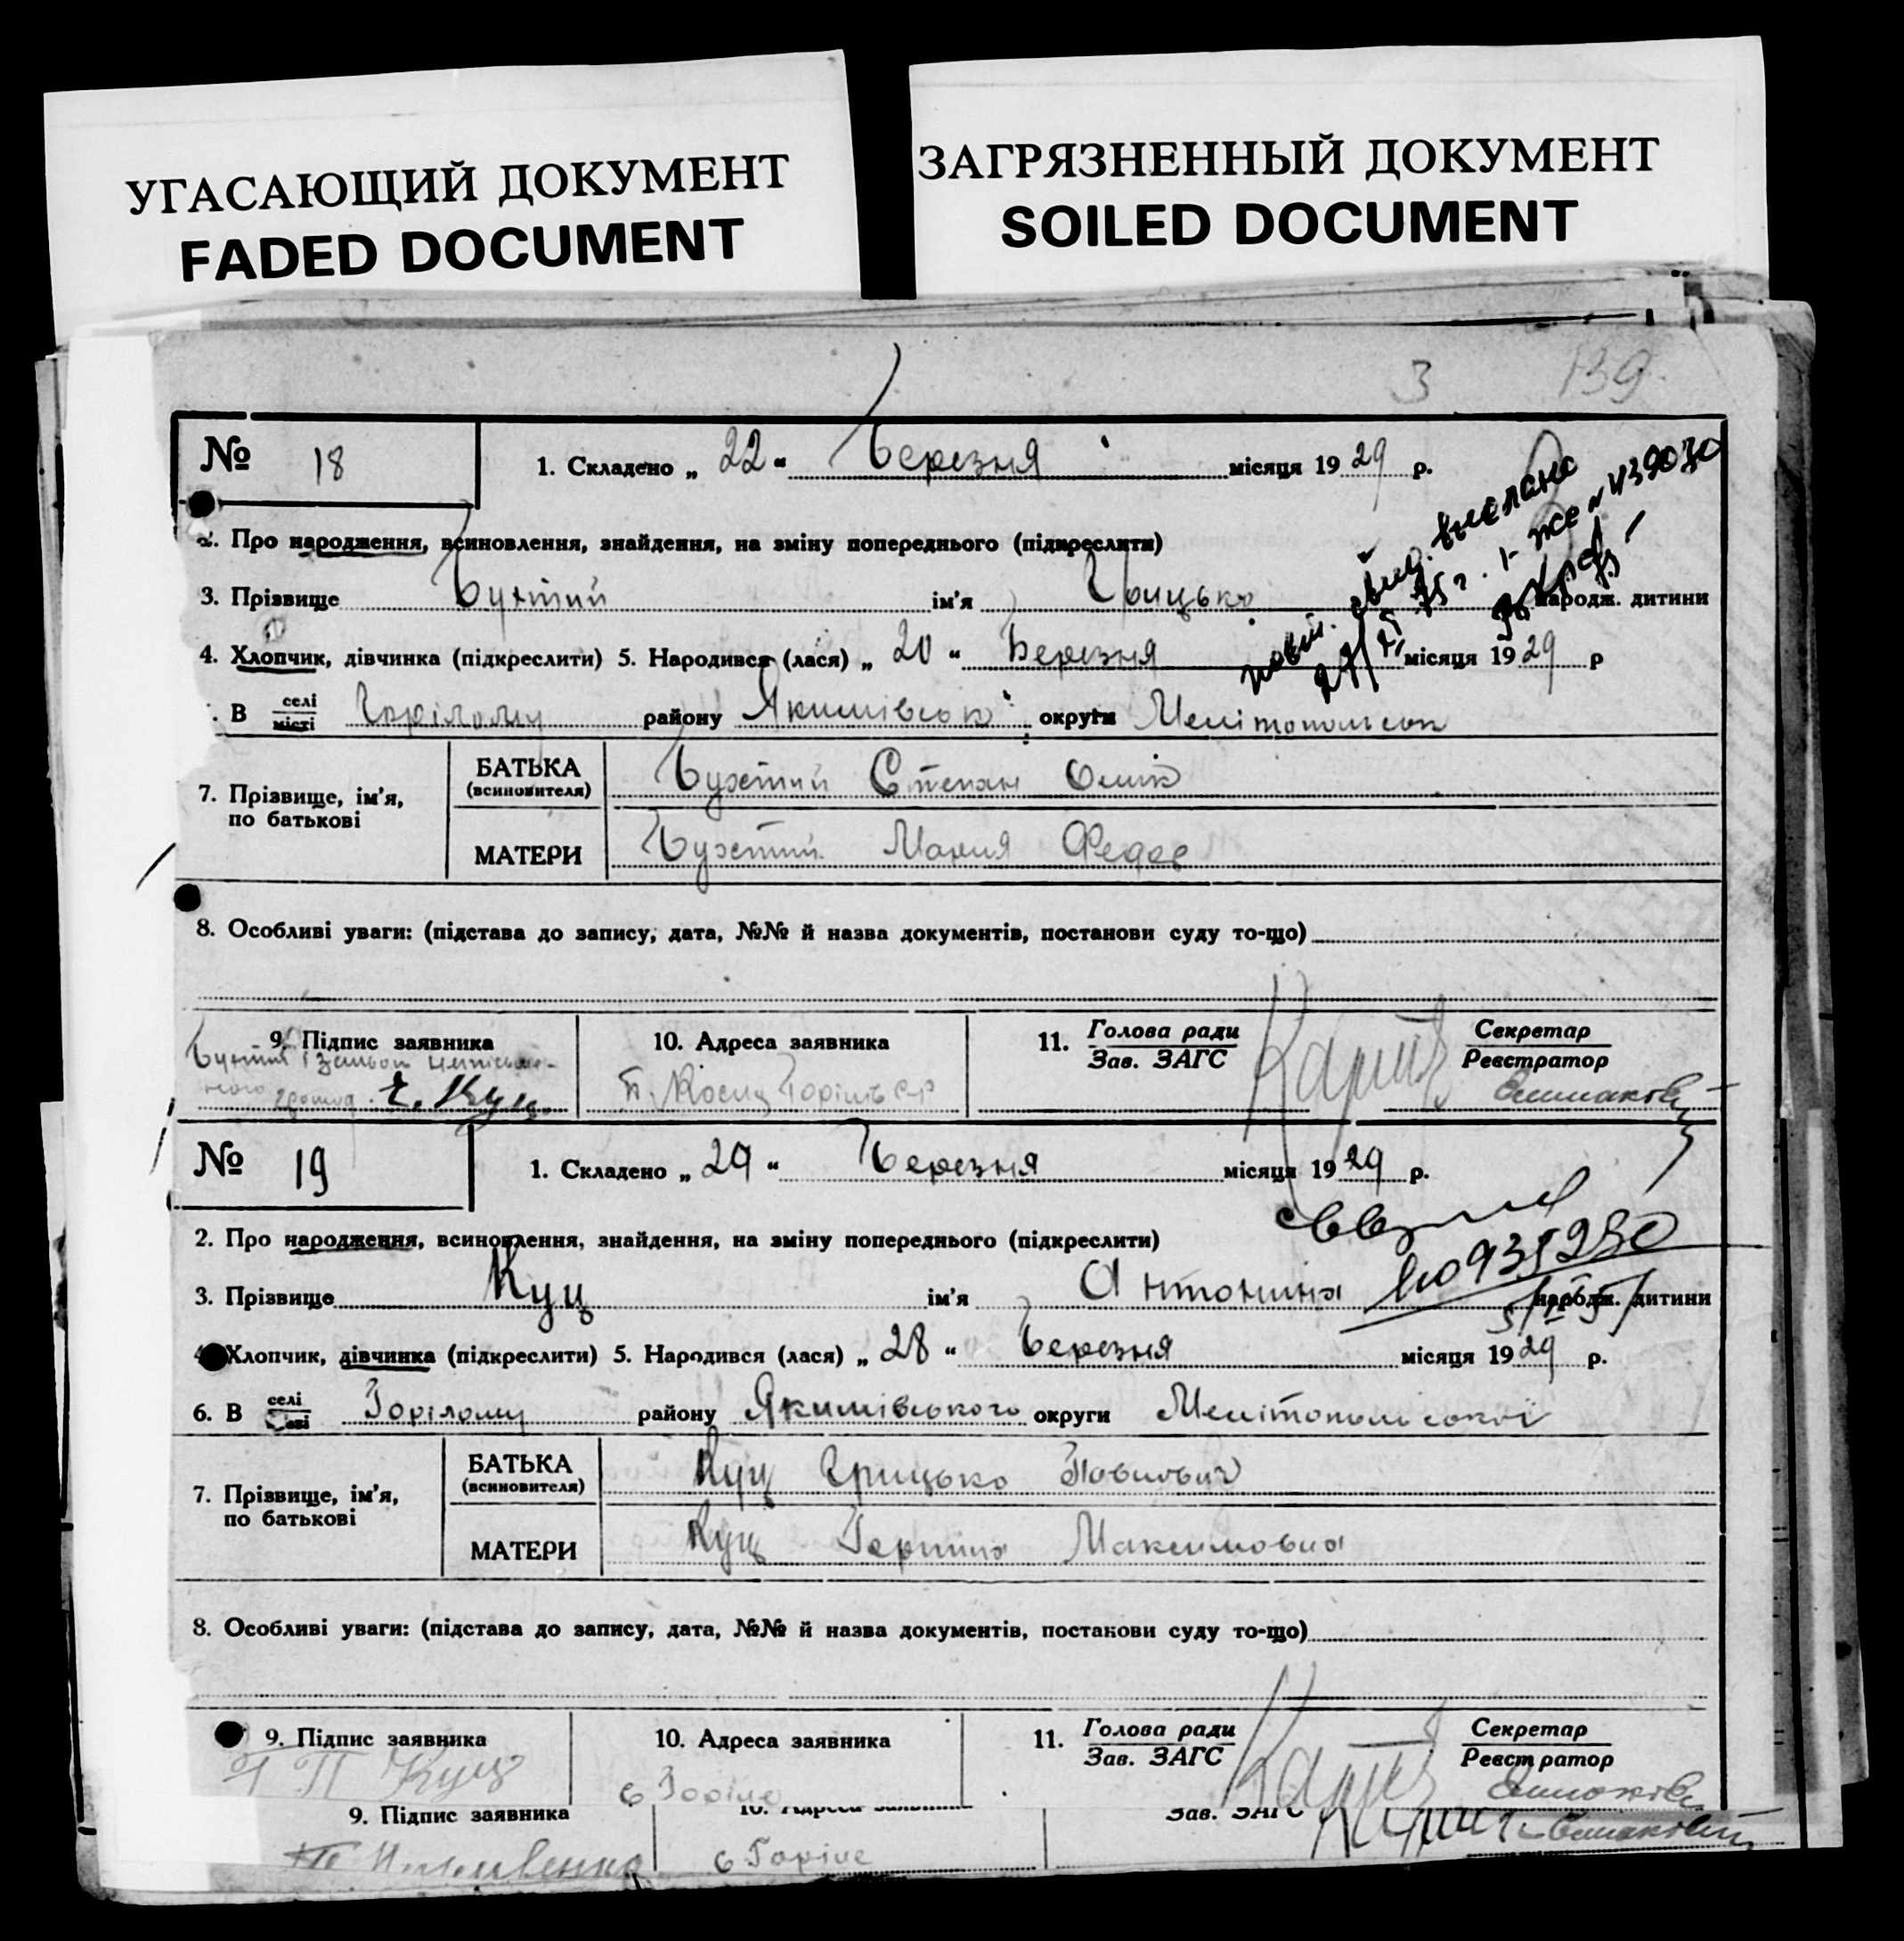 УГАСАЮЩИЙ ДОКУМЕНТ
FADED DOCUMENT
ЗАГРЯЗНЕННЫЙ ДОКУМЕНТ
SOILED DOCUMENT
3 139
№ 18
1. Складено „ 22 “ Березня місяця 1929 р.
2. Про народження, всиновлення, знайдення, на зміну попереднього (підкреслити)
3. Прізвище ім'я Грицько народж. дитини
4. Хлопчик, дівчинка (підкреслити) 5. Народився (лася) „ 20 “ Березня місяця 1929 р
В селі місті Горілому району Якимівськ округи Мелітопольськ
7. Прізвище, ім'я, по батькові
БАТЬКА (всиновителя) Степан
МАТЕРИ Мария Федор
8. Особливі уваги: (підстава до запису, дата, №№ й назва документів, постанови суду то-що)
9. Підпис заявника
10. Адреса заявника
11. Голова ради Зав. ЗАГС
Секретар Реєстратор
№ 19
1. Складено „ 29 “ Березня місяця 1929 р.
2. Про народження, всиновлення, знайдення, на зміну попереднього (підкреслити)
3. Прізвище Куц ім'я Антонина народж. дитини
Хлопчик, дівчинка (підкреслити) 5. Народився (лася) „ 28 “ Березня місяця 1929 р.
6. В селі Горілому району Якимівського округи Мелітопольської
7. Прізвище, ім'я, по батькові
БАТЬКА (всиновителя) Куц Грицько Павлович
МАТЕРИ Куц Максимовна
8. Особливі уваги: (підстава до запису, дата, №№ й назва документів, постанови суду то-що)
9. Підпис заявника
Г П Куц
10. Адреса заявника
с Горіле
11. Голова ради Зав. ЗАГС
Секретар Реєстратор
9. Підпис заявника
с Горіле
Зав. ЗАГС